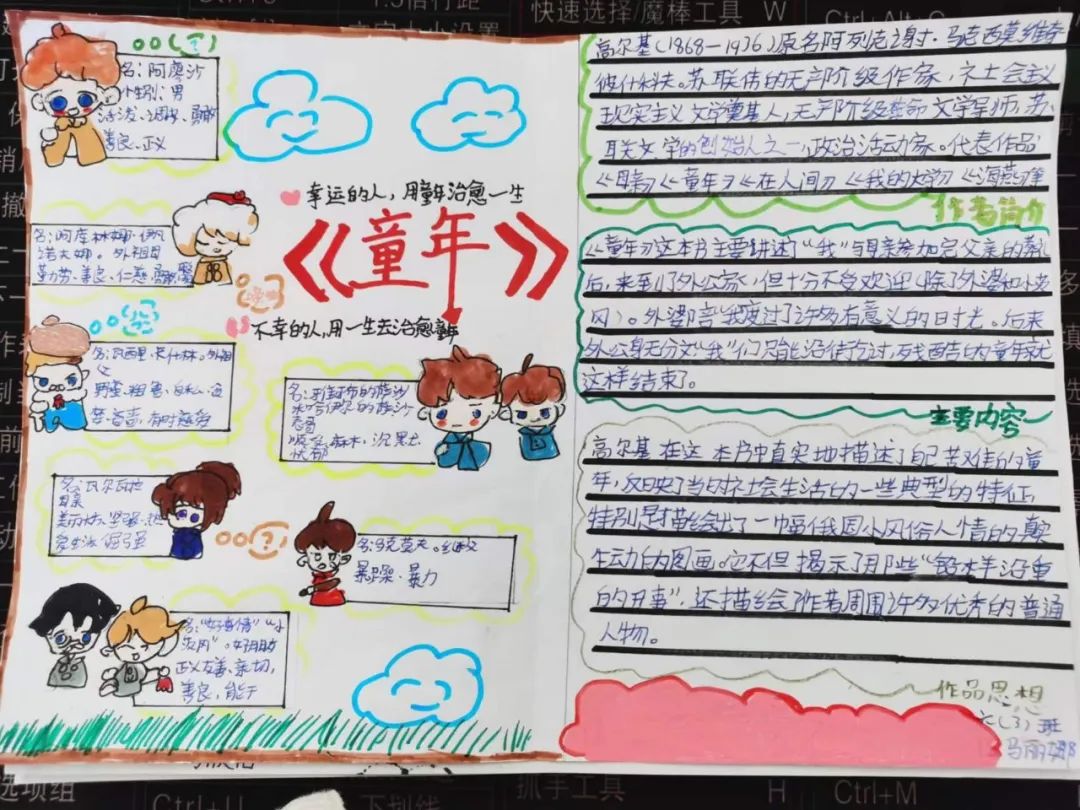 名：阿廖沙
性别：男
活泼、调皮、勇敢
善良、正义
幸运的人，用童年治愈一生
《童年》
不幸的人，用一生去治愈童年
名：阿库林娜·伊凡
诺夫娜。外祖母
勤劳、善良、仁慈
名：瓦西里·卡什林。外祖
父
野蛮、粗鲁、自私、贪
婪、吝啬，有时慈爱
名：雅科布的萨沙
米哈伊尔的萨沙
表哥
名：瓦尔瓦拉
母亲
美丽大方、坚强、热
爱生活、倔强
名：马克西莫夫。继父
暴躁、暴力
名：“好事情”“小
茨冈”。好朋友
正义友善、亲切，
善良，能干
高尔基(1868—1936)原名阿列克谢·马克西莫维奇
彼什科夫。苏联伟大的无产阶级作家，社会主义
现实主义文学奠基人，无产阶级革命文学导师，苏
联文学的创始人之一，政治活动家。代表作品
《母亲》《童年》《在人间》《我的大学》《海燕》等
作者简介
《童年》这本书主要讲述了“我”与母亲参加完父亲的葬礼
后，来到了外公家，但十分不受欢迎（除了外婆和小茨
冈）。外婆陪“我”度过了许多有意义的日子。后来
外公身无分文“我”们只能沿街乞讨，残酷的童年就
这样结束了。
主要内容
高尔基在这本书中真实地描述了自己苦难的童
年，反映了当时社会生活的一些典型的特征，
特别是描绘出了一幅俄国小风俗人情的真实
生动的图画。它不但揭示了那些“铅样沉重
的丑事”，还描绘了作者周围许多优秀的普通
人物。
作品思想
七(3)班
马丽娜